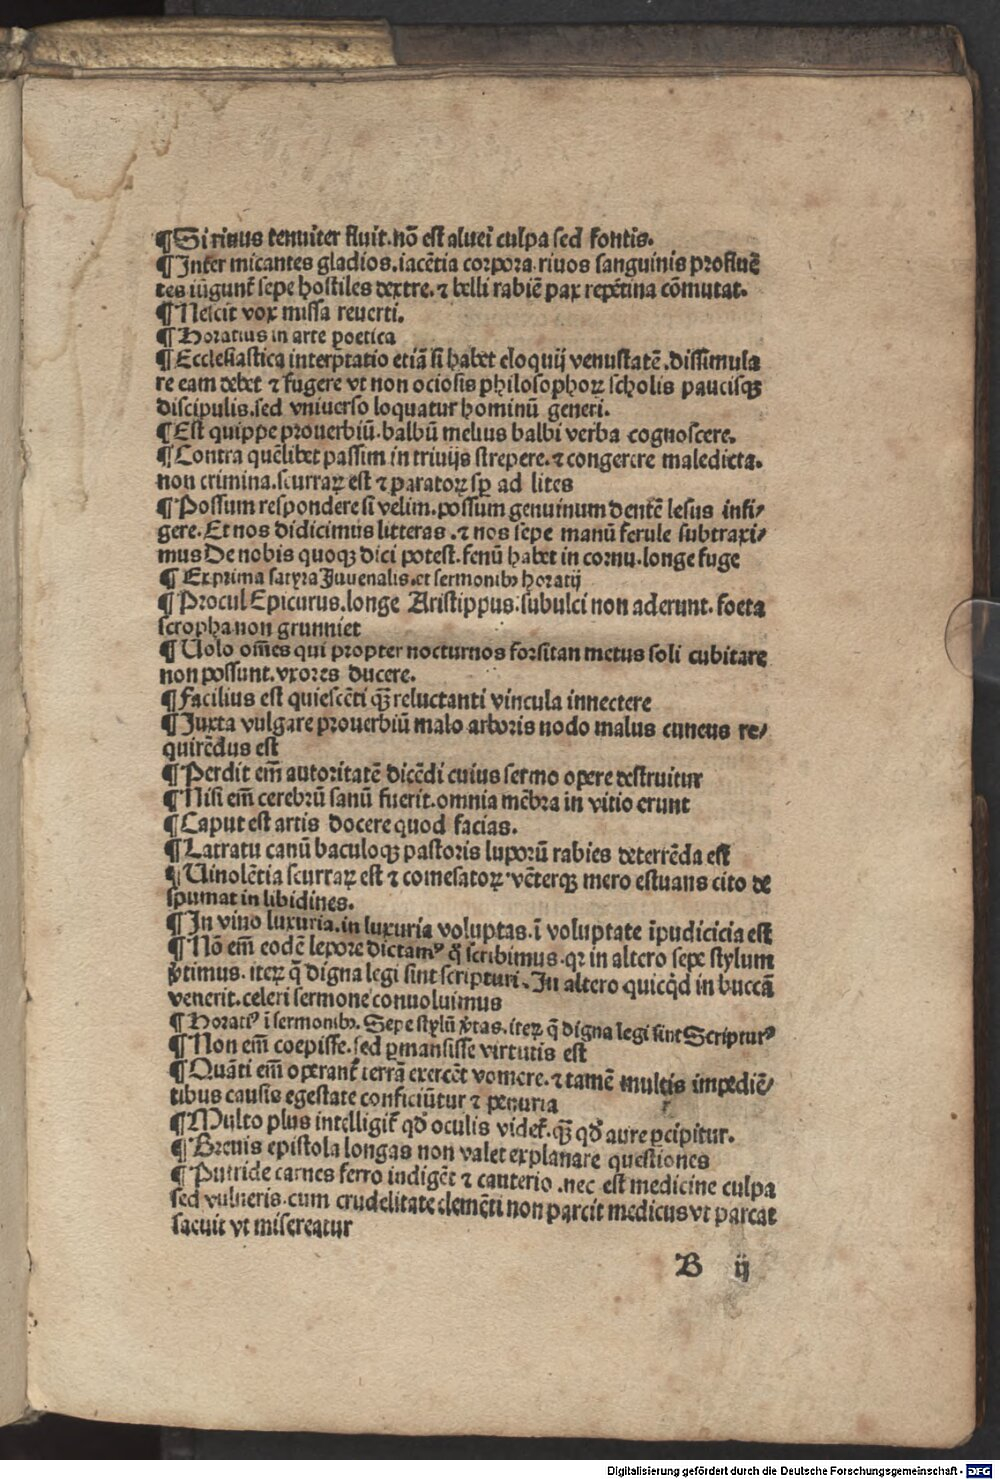 ¶Si rivus tenuiter fluit.nõ est aluei culpa sed fontis.
¶Inter micantes gladios.iacẽtia corpora.riuos sanguinis profluẽ
tes iũgunt᷑ sepe hostiles dextre.⁊ belli rabiẽ pax repẽtina cõmutat.
¶Nescit vox missa reuerti.
¶Horatius in arte poetica
¶Ecclesiastica interp̱tatio etiã si habet eloquij venustatẽ.dissimula
re eam debet ⁊ fugere vt non ociosis philosophoꝝ scholis paucisqꝫ
discipulis.sed vniuerso loquatur hominũ generi.
¶Est quippe prouerbiũ.balbũ melius balbi verba cognoscere.
¶Contra quẽlibet passim in triuijs strepere.⁊ congerere maledicta.
non crimina.scurraꝝ est ⁊ paratoꝝ sꝑ ad lites
¶Possum respondere si velim.possum genuinum dentẽ lesus infi⸗
gere.Et nos didicimus litteras.⁊ nos sepe manũ ferule subtraxi⸗
mus De nobis quoqꝫ dici potest.fenũ habet in cornu.longe fuge
¶Ex prima satyra Juuenalis.et sermonibꝰ horatij
¶Procul Epicurus.longe Aristippus.subulci non aderunt.foeta
scropha non grunniet
¶Uolo om̃es qui propter nocturnos forsitan metus soli cubitare
non possunt.vxores ducere.
¶Facilius est quiescẽti qꝫ̃ reluctanti vincula innectere
¶Juxta vulgare prouerbiũ malo arboris nodo malus cuneus re⸗
quirẽdus est
¶Perdit em̃ autoritatẽ dicẽdi cuius sermo opere destruitur
¶Nisi em̃ cerebrũ sanũ fuerit.omnia mẽbra in vitio erunt
¶Caput est artis docere quod facias.
¶Latratu canũ baculoqꝫ pastoris luporũ rabies deterrẽda est
¶Uinolẽtia scurraꝝ est ⁊ comesatoꝝ.vẽterqꝫ mero estuans cito de
spumat in libidines.
¶In vino luxuria.in luxuria voluptas.ĩ voluptate ĩpudicicia est
¶Nõ em̃ eodẽ lepore dictamꝰ q̃ scribimus.qꝛ in altero sepe stylum
v̓timus.iteꝝ q̃ digna legi sint scripturi.In altero quicq̇d in buccã
venerit.celeri sermone conuoluimus
¶Horatiꝰ ĩ sermonibꝰ.Sepe stylũ v̓tas.iteꝝ q̃ digna legi sint Scripturꝰ
¶Non em̃ coepisse.sed ꝑmansisse virtutis est
¶Quãti em̃ operant᷑ terrã exercẽt vomere.⁊ tamẽ multis impediẽ⸗
tibus causis egestate conficiũtur ⁊ penuria
¶Multo plus intelligit᷑ qđ oculis videt᷑.qꝫ̃ qđ aure ꝑcipitur.
¶Breuis epistola longas non valet explanare questiones
¶Putride carnes ferro indigẽt ⁊ cauterio.nec est medicine culpa
sed vulneris.cum crudelitate clemẽti non parcit medicus vt parcat
saeuit vt misereatur
B ij
Digitalisierung gefördert durch die Deutsche Forschungsgemeinschaft - DFG